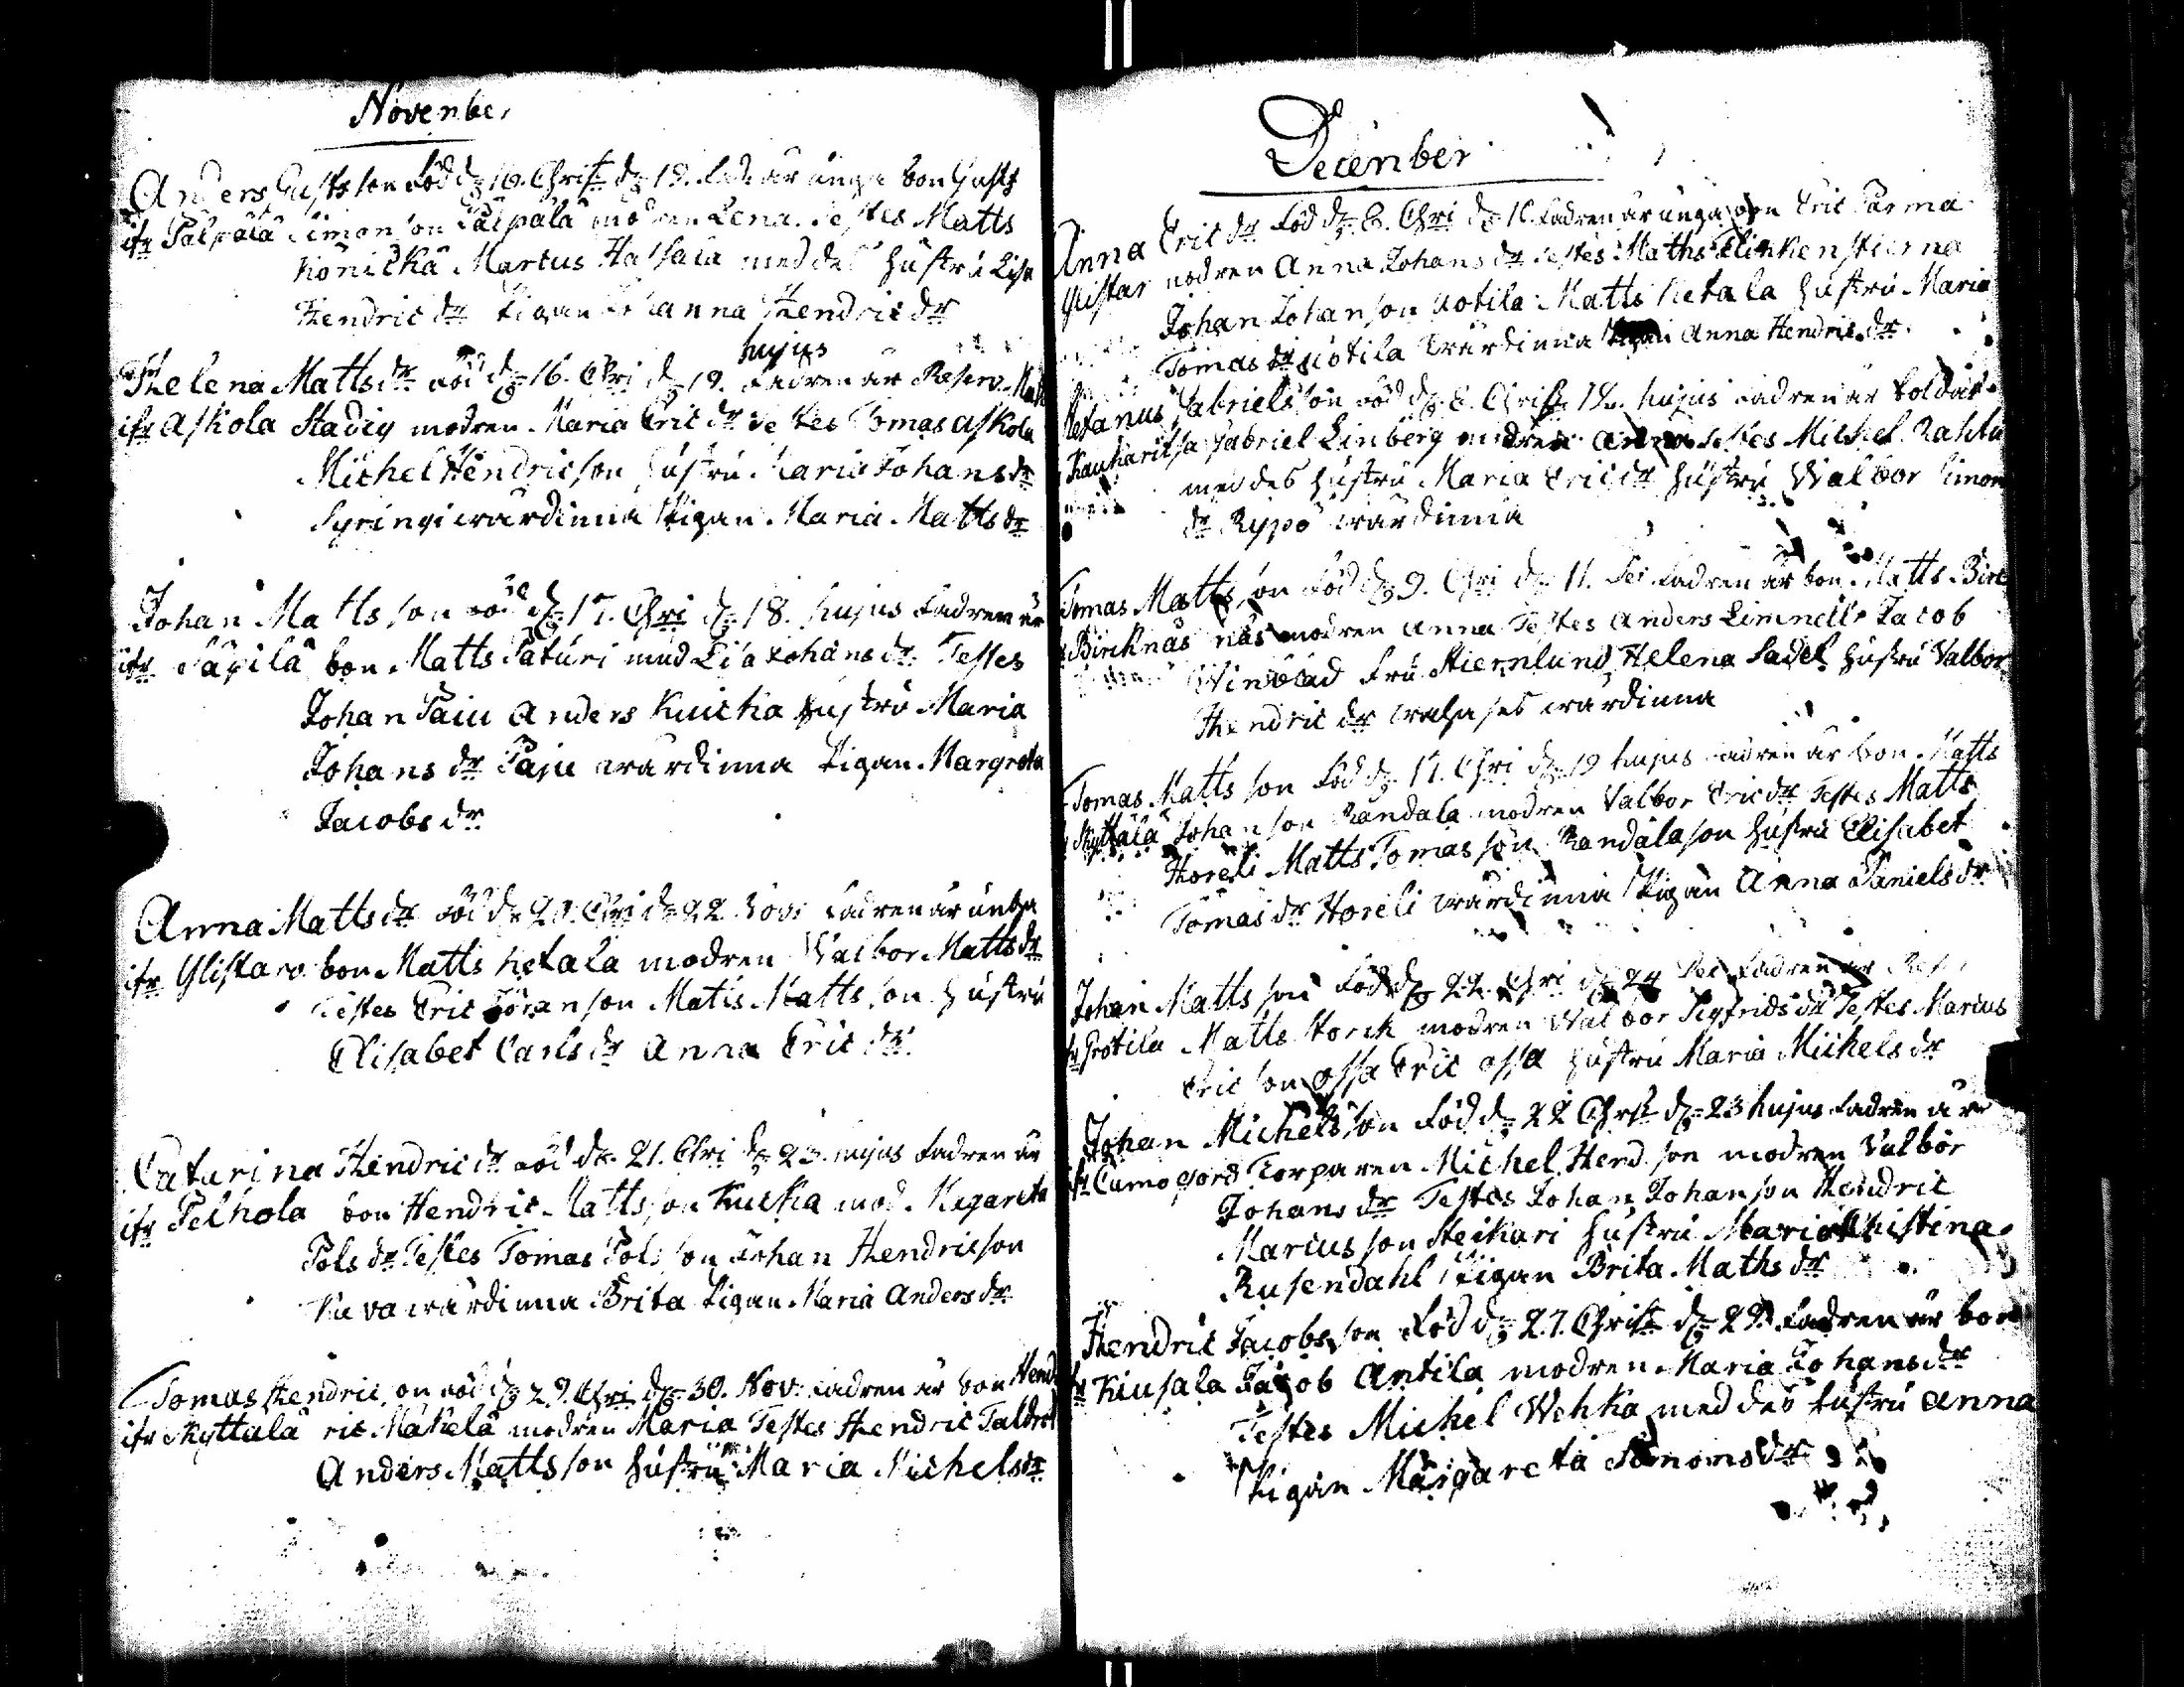 November
Anders Gustfs son föd dn 16. Christ dn 19. fadr är unga bon Gustf
ifr Palpala Simonson Palpala modren Lena. Testes Matts
Könickä Marcus Hassala med des hustru Lisa
Hendric dr Pigan Johanna Hendric dr
hujus
Helena Matts dr föd dn 16. Chri dn 19. fadren är Reserv. Matts
ifr Askola Stadig modren Maria Eric dr Testes Tomas Askola
Michel Hendricson hustru Maria Johans dr
Syringi wärdinna Pigan Maria Matts dr
Johan Matts son föd dn 17. Chri dn 18. hujus fadren är
ifr Säxilä bon Matts Paturi mod Lisa Johans dr Testes
Johan Paiu Anders Kuicka hustru Maria
Johans dr Paju wärdinna Pigan Margreta
Jacobs dr
Anna Matts dr föd dn 20. Chri dn 22. Nov: fadren är unga
ifr Glistaro bon Matts Ketala modren Walbor Matts dr
Testes Eric Göranson Matts Matts son hustru
Elisabet Carls dr Anna Eric dr
Catarina Hendric dr föd dn 21. Chri dn 23. hujus fadren är
ifr Pelhola bon Hendric Matts son Kucka mod. Margareta
Pols dr Testes Tomas Pols son Johan Hendricson
Kuva wärdinna Brita Pigan Maria Anders dr
Tomas Hendricson föd dn 29. Chri dn 30. Nov: fadren är bon Hend
ifr Kyttälä ric Mäkelä modren Maria Testes Hendric
Anders Matts son hustru Maria Michels dr
December
Anna Eric dr föd dn 8. Chri dn 10. fadren är unga bon Eric Parma
Glistar modren Anna Johans dr Testes Maths Flinkenstierna
Johan Johanson Kotila Matts Ketala hustru Maria
Tomas dr Kotila wärdinna Pigan Anna Hendric dr
Stefanus Gabriels son föd dn 8. Christ 12. hujus fadren är Soldat
Kauharitsa Gabriel Linberg modren Anna Testes Michel
med des hustru Maria Eric dr hustru Walbor Simons
dr Rypö wärdinna
Tomas Matts son föd dn 9. Chri dn 11. Dec fadren är bon Matts Birc
Bircknäs näs modren Anna Testes Anders Limnell Jacob
Fru Stiernlund Helena Sadel hustru Valbor
Hendric dr wärdinna
Tomas Matts son föd dn 17. Chri dn 19 hujus fadren är bon Matts
Kyttälä Johanson Randala modren Valbor Eric dr Testes Matts
Horeli Matts Tomas son Randala son hustru Elisabet
Tomas dr Horeli wärdinna Pigan Anna Daniels dr
Johan Matts son föd dn 22. Chri dn 24 Dec fadren är
ifr Grötila Matts Storck modren Walbor Sigfrids dr Testes Marcus
Eric son Ossa Eric Ossa hustru Maria Michels dr
Johan Michels son föd dn 22 Christ dn 23 hujus fadren är
ifr Cumogord Torparen Michel Hend. son modren Valbor
Johans dr Testes Johan Johanson Hendric
Marcus son Heikari hustru Maria Christina
Rusendahl Pigan Brita Maths dr
Hendric Jacobs son föd dn 27. Christ dn 29. fadren är bon
ifr Kiusala Jacob Antila modren Maria Johans dr
Testes Michel Wehka med des hustru Anna
Pigan Margareta Simons dr